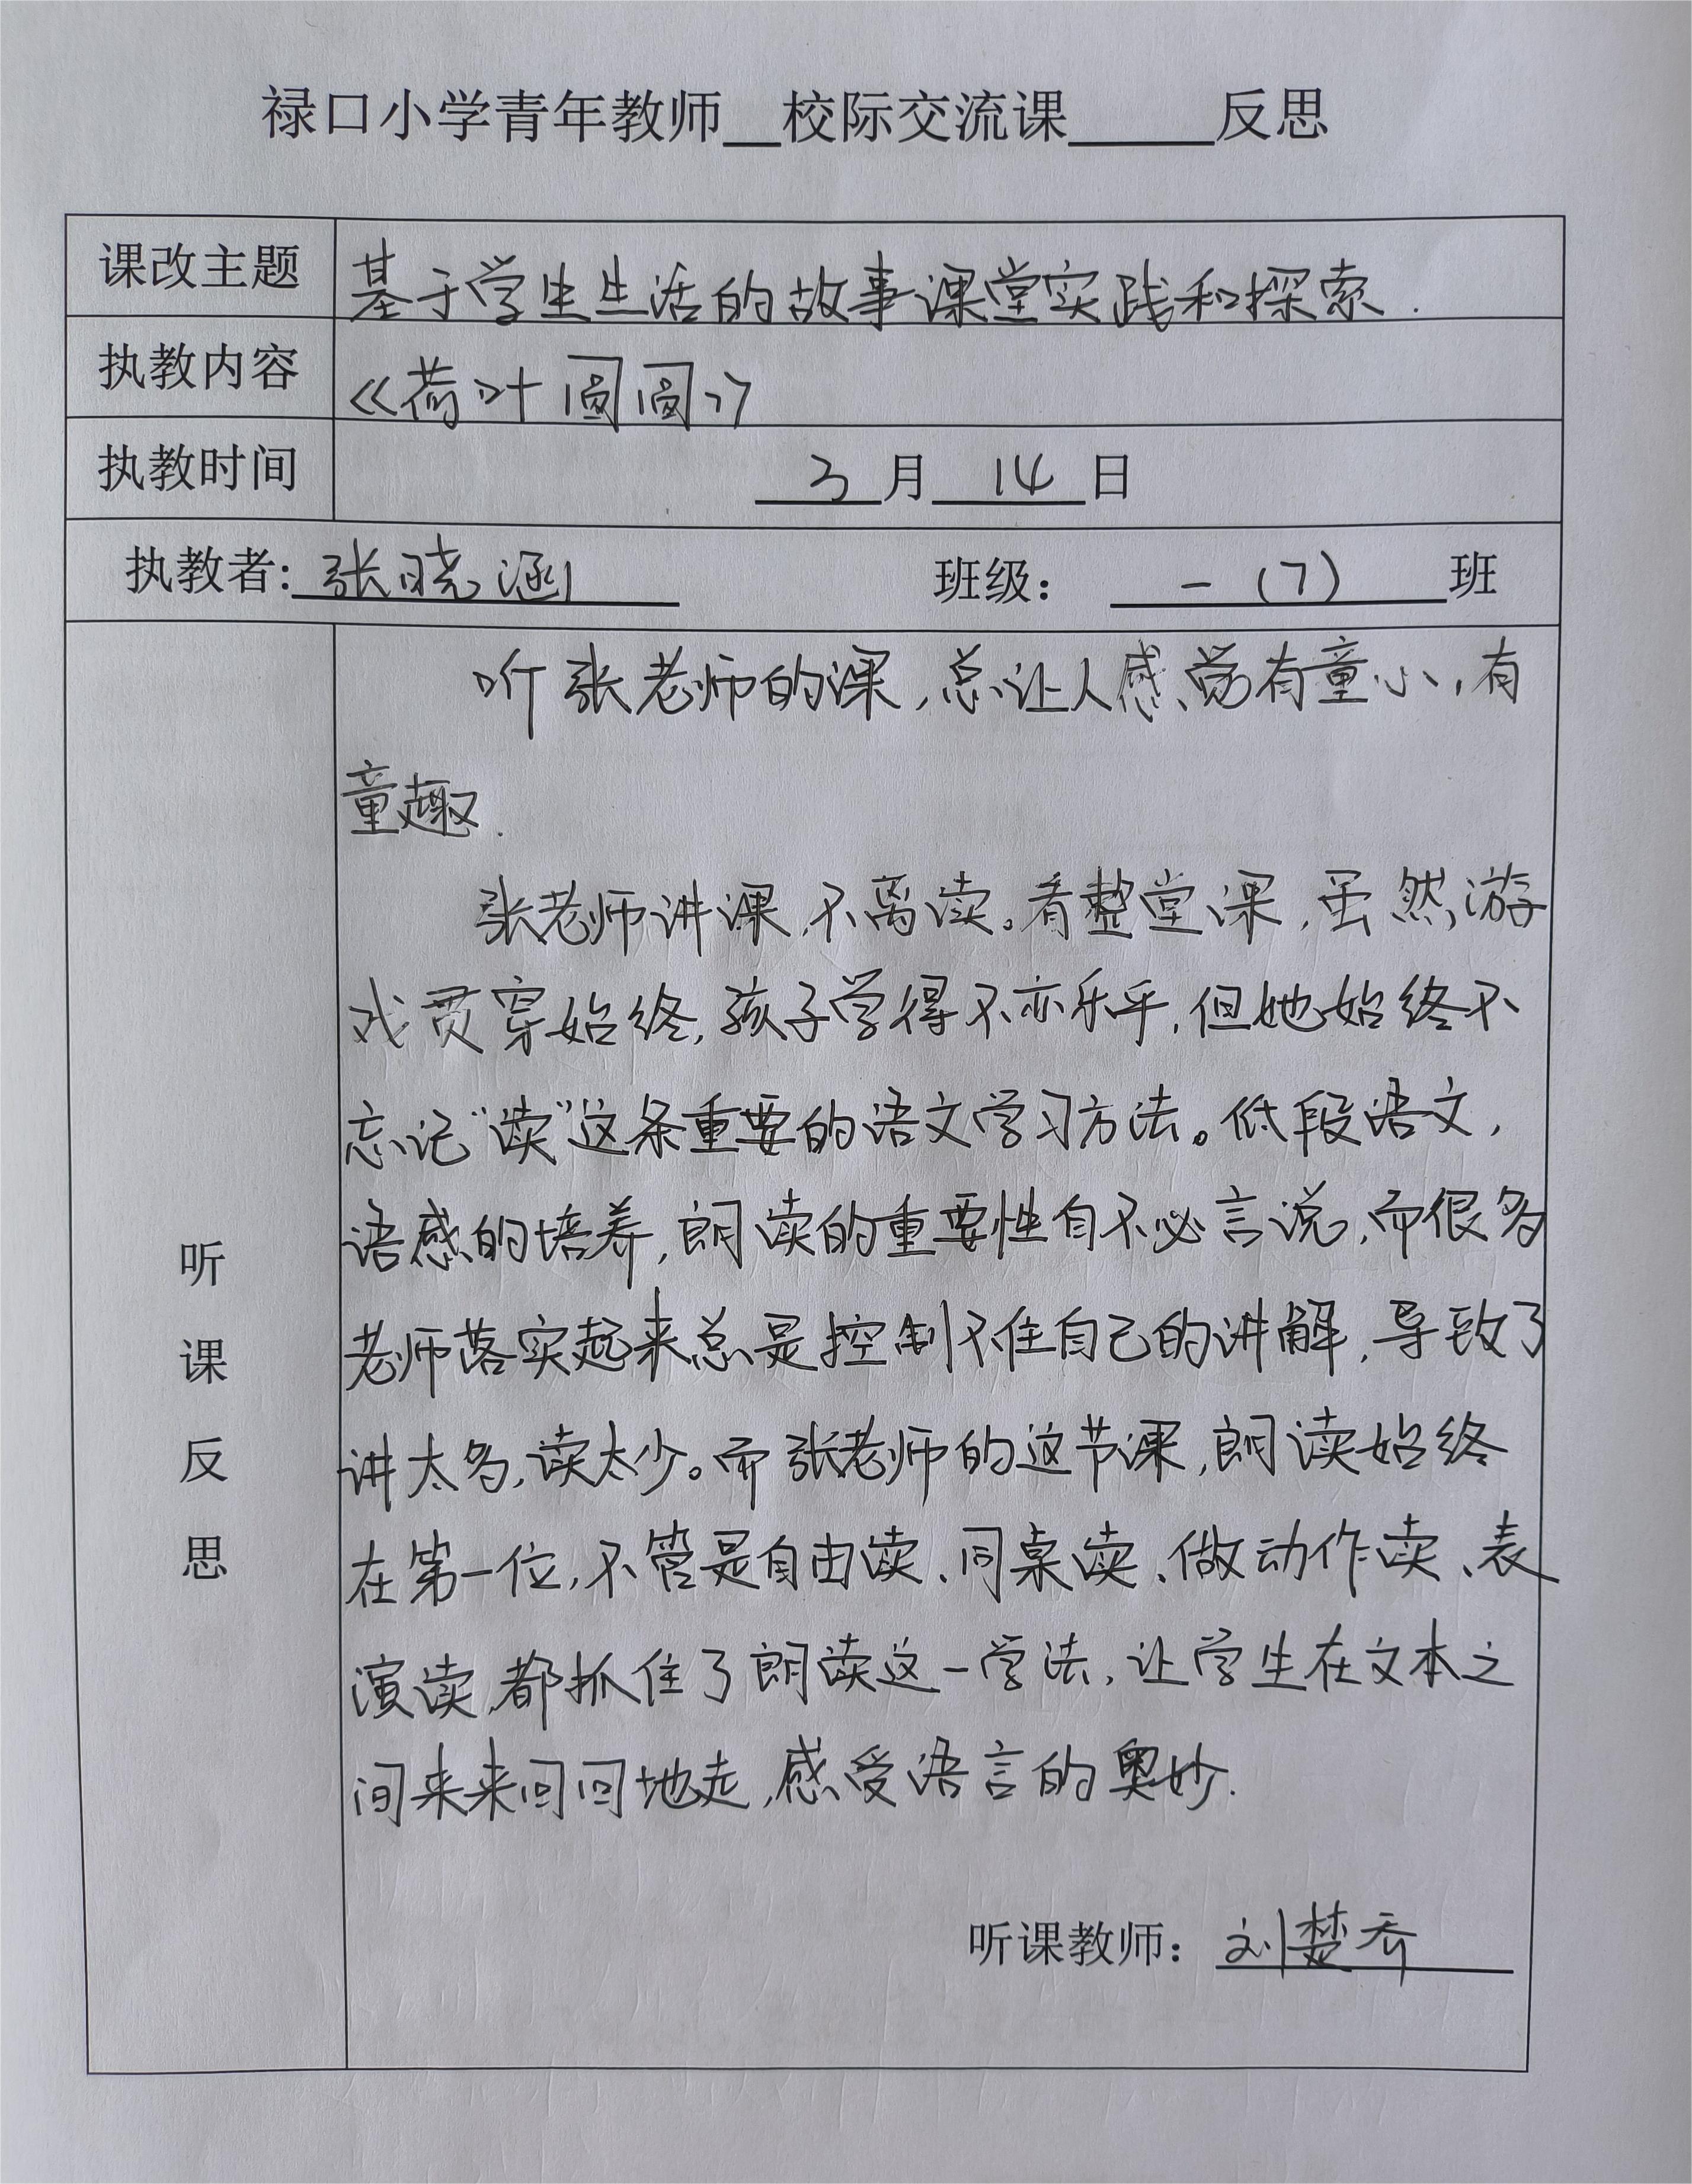 禄口小学青年教师__校际交流课_____反思
课改主题 基于学生生活的故事课堂实践和探索.
执教内容 《荷叶圆圆》
执教时间 3月14日
执教者: 张晓涵 班级: 一(7)班
听课反思
听张老师的课,总让人感觉有童心,有
童趣.
张老师讲课,不离读。看整堂课,虽然游
戏贯穿始终,孩子学得不亦乐乎,但她始终不
忘记“读”这条重要的语文学习方法。低段语文,
语感的培养,朗读的重要性自不必言说,而很多
老师落实起来总是控制不住自己的讲解,导致了
讲太多,读太少。而张老师的这节课,朗读始终
在第一位,不管是自由读、同桌读、做动作读、表
演读,都抓住了朗读这一学法,让学生在文本之
间来来回回地走,感受语言的奥妙.
听课教师: 刘楚乔